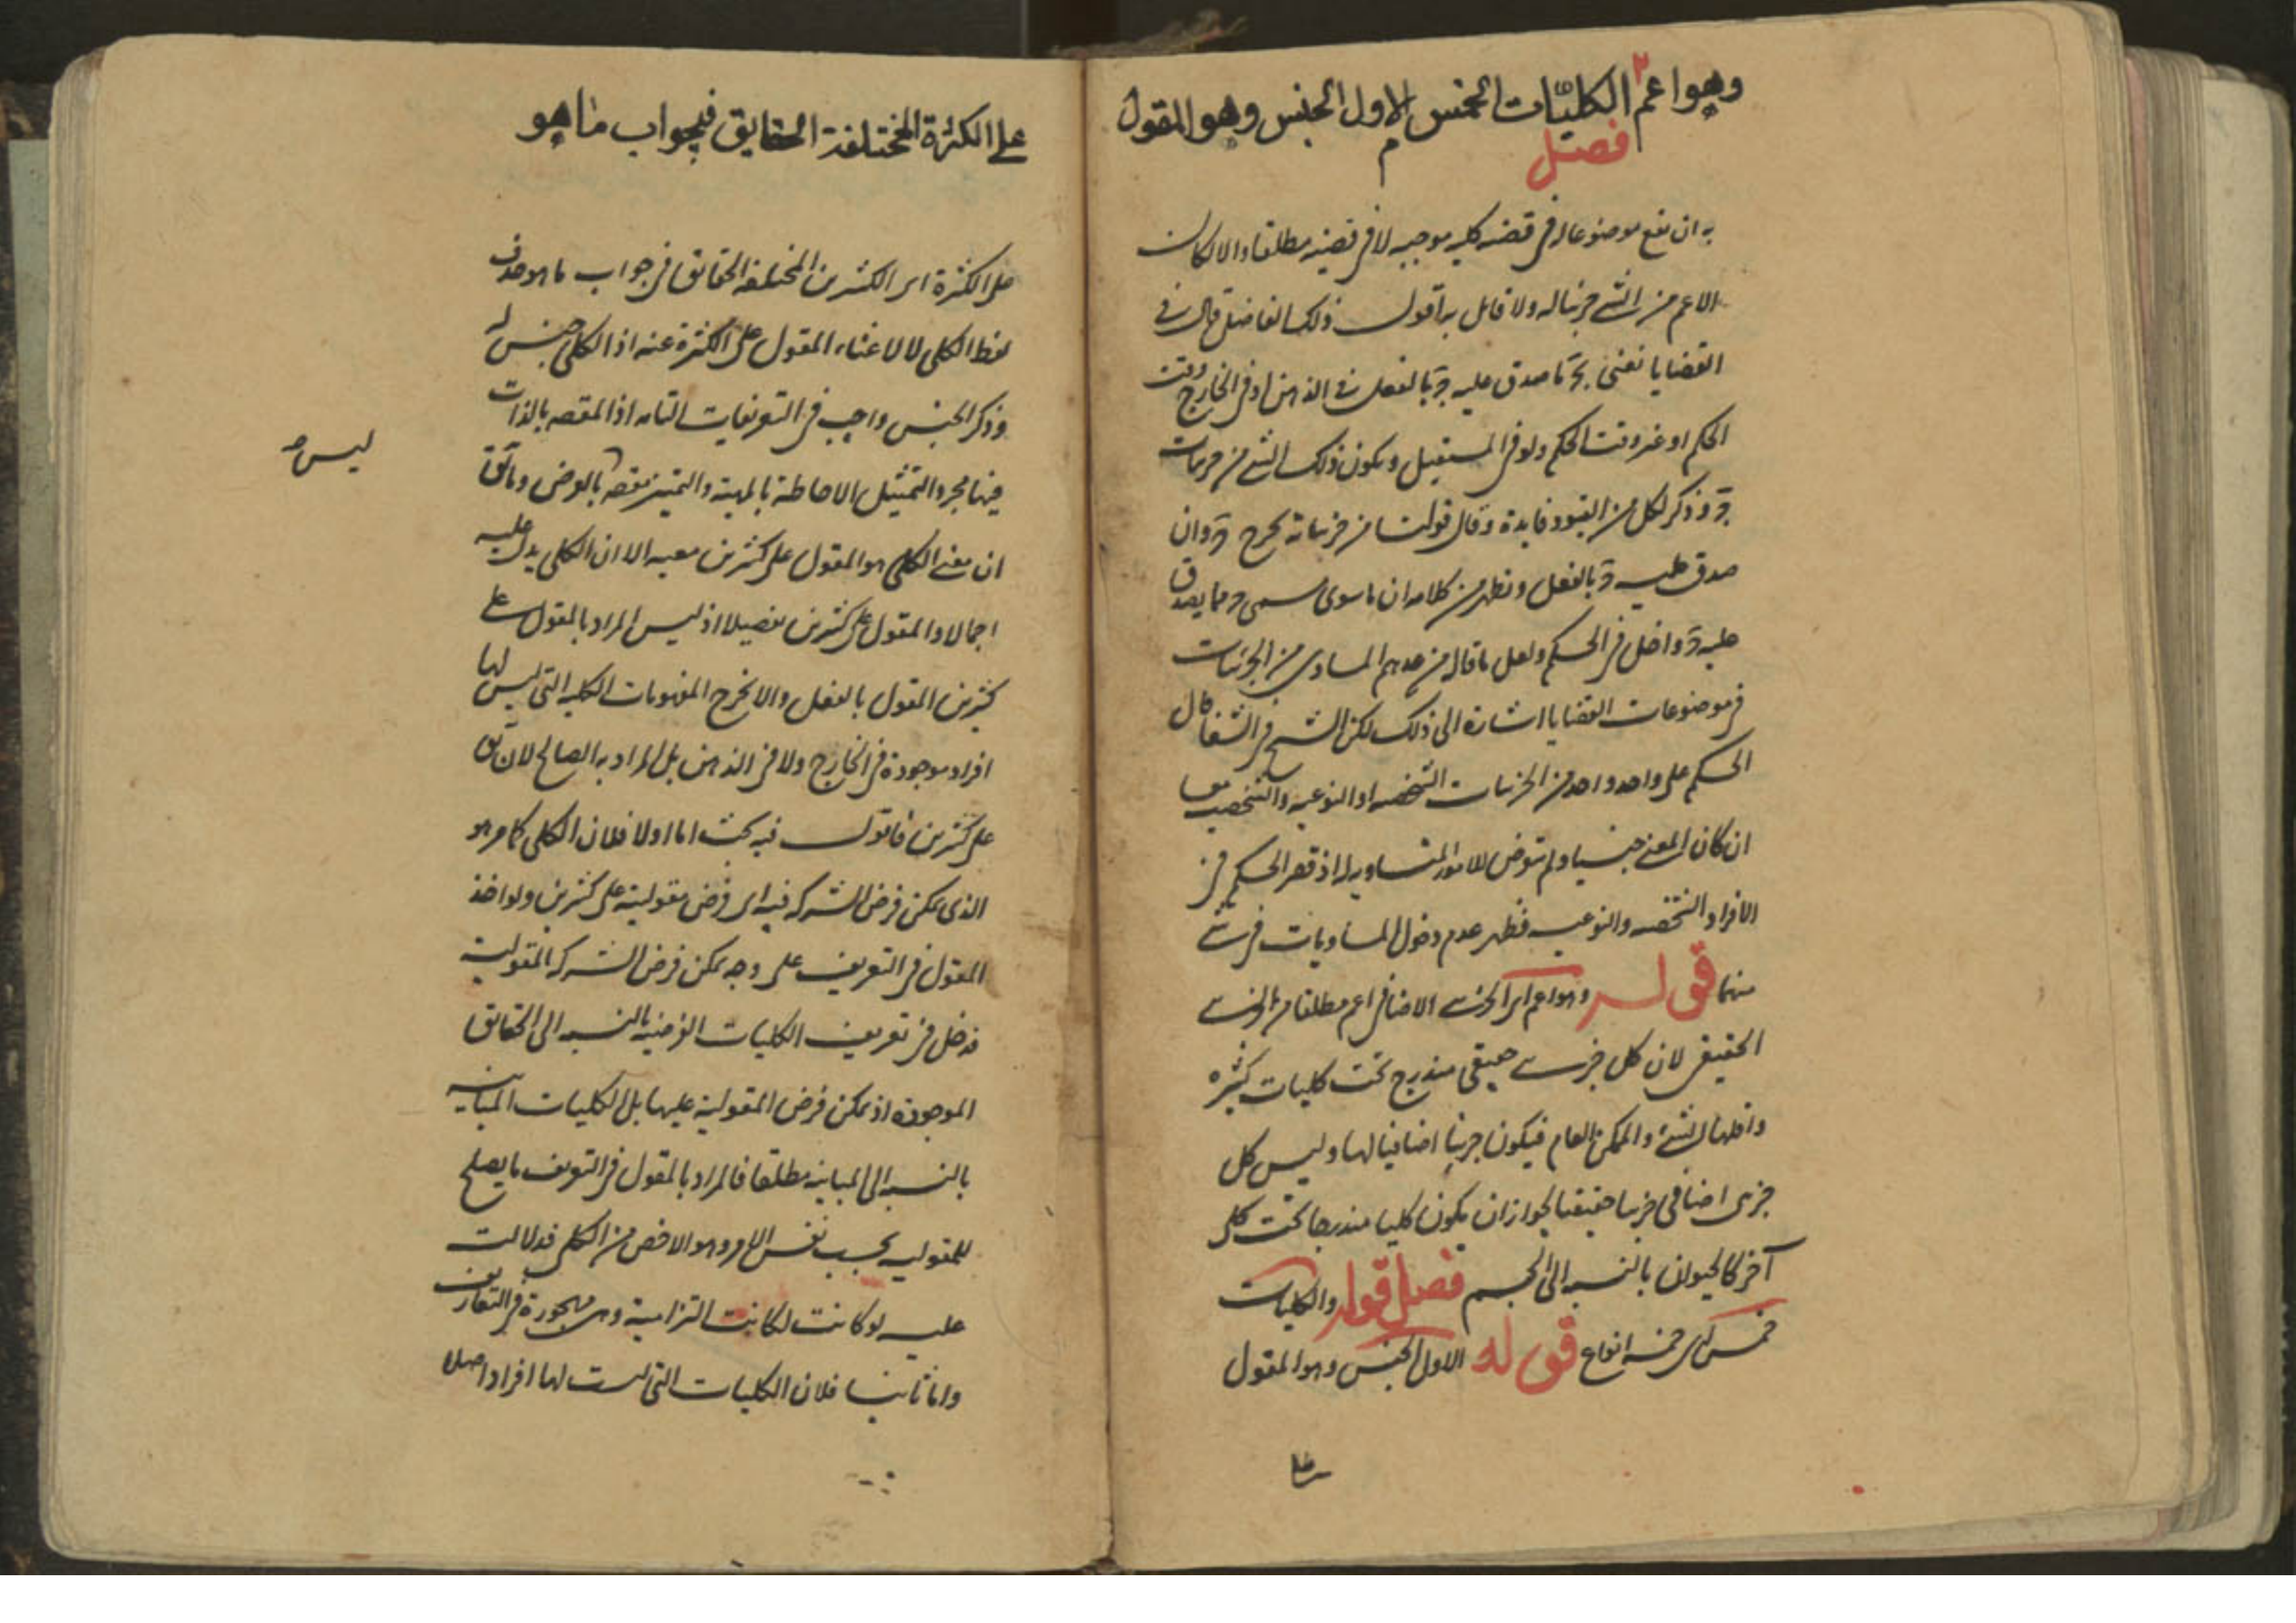 وهو اعم الكليّات الخمس الاول الجنس وهو المقول
فصل
به ان يقع موضوعا له في قضيه كليه موجبه لا في قضيه مطلقا والا لكان
الاعم من الشي جزئيا له ولا قائل به اقول ذلك الفاضل قال في
القضايا نعني بج ما صدق عليه ج بالفعل في الذهن او في الخارج وقت
الحكم او غير وقت الحكم ولو في المستقبل ويكون ذلك الشي من جزئيات
ج وذكر لكل من القيود فايدة وقال قولنا من جزئياته يخرج ج وان
صدق عليه ج بالفعل ونظهر من كلامه ان ما سوى مسمى ج مما يصدق
عليه ج داخل في الحكم ولعل ما قال من عدهم المساوي من الجزئيات
في موضوعات القضايا اشارة الى ذلك لكن الشيخ في الشفا قال
الحكم على واحد واحد من الجزئيات الشخصيه او النوعيه والشخصيه معا
ان كان المعنى جنسيا ولم يتعرض للامور المتساويه له اذ قصر الحكم في
الافراد الشخصيه والنوعيه فظهر عدم دخول المساويات في شي
منهما قوله وهو اعم اي الجزئي الاضافي اعم مطلقا من الجزئي
الحقيقي لان كل جزئي حقيقي مندرج تحت كليات كثيره
واقلها الشئ والممكن العام فيكون جزئيا اضافيا لها وليس كل
جزئي اضافي جزئيا حقيقيا لجواز ان يكون كليا مندرجا تحت كلي
آخر كالحيوان بالنسبه الى الجسم فصل قوله والكليات
خمس اي خمسه انواع قوله الاول الجنس وهو المقول
على
على الكثرة المختلفة الحقايق في جواب ما هو
على الكثرة اي الكثيرين المختلفه الحقائق في جواب ما هو حذف
لفظ الكلي لا لاغناء المقول على الكثرة عنه اذ الكلي جنس له
وذكر الجنس واجب في التعريفات التامه اذ المقصه بالذات
فيها مجرد التمثيل الاحاطة بالمهية والتميز مقصه بالعرض وما يق
ليس صح
ان معنى الكلي هو المقول على كثيرين بعينه الا ان الكلي يدل عليه
اجمالا والمقول على كثيرين تفصيلا اذ ليس المراد بالمقول على
كثيرين المقول بالفعل والا لخرج المفهومات الكليه التي ليس لها
افراد موجودة في الخارج ولا في الذهن بل المراد به الصالح لان يق
على كثيرين فاقول فيه بحث اما اولا فلان الكلي كما مر هو
الذي يمكن فرض الشركه فيه اي فرض مقوليته على كثيرين ولو اخذ
المقول في التعريف على وجه يمكن فرض الشركه المقوليه
فدخل في تعريف الكليات الفرضيه بالنسبه الى الحقائق
الموجوده اذ يمكن فرض المقولية عليها بل الكليات المباينه
بالنسبه الى المباينه مطلقا فالمراد بالمقول في التعريف ما يصلح
للمقوليه بحسب نفس الامر وهو الاخص من الكلي فدلالت
عليه لو كانت لكانت التزامية وهي مهجورة في التعاريف
واما ثانيا فلان الكليات التي ليست لها افراد اصلا